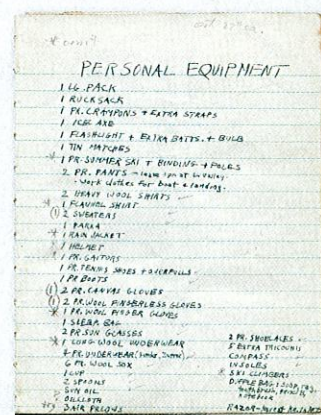 PERSONAL EQUIPMENT
1 LG. PACK
1 RUCKSACK
1 PR. CRAMPONS + EXTRA STRAPS
1 ICE AXE
1 FLASHLIGHT + EXTRA BATTS. + BULB
1 TIN MATCHES
* 1 PR. SUMMER SKI + BINDING + POLES
2 PR. PANTS
- Work clothes for boat & landing.
2 HEAVY WOOL SHIRTS
* 1 FLANNEL SHIRT
(1) 2 SWEATERS
1 PARKA
* 1 RAIN JACKET
1 HELMET
1 PR. GAITORS
1 PR. TENNIS SHOES + OVERPULLS
1 PR BOOTS
(1) 2 PR. CANVAS GLOVES
(1) 2 PR. WOOL FINGERLESS GLOVES
* 1 PR. WOOL FINGER GLOVES
1 SLEEP BAG
2 PR SUN GLASSES
* 1 LONG WOOL UNDERWEAR
4 PR. UNDERWEAR
6 PR. WOOL SOX
1 CUP
2 SPOONS
SUN OIL
OILCLOTH
2 PR. SHOELACES
5 EXTRA TRICOUNIS
COMPASS
INSOLES
* SKI CLIMBERS
DUFFLE BAG: SOAP, RAG,
toothbrush, pencils,
notebook
RAZOR